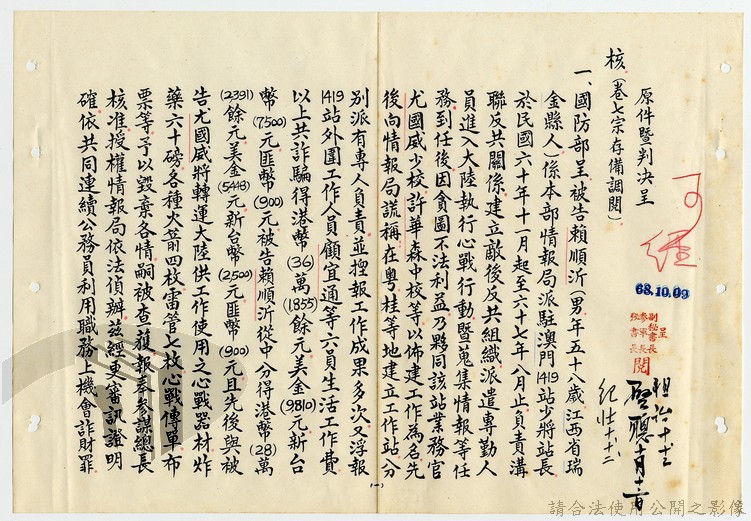 原件暨判決呈
核（卷七宗存備調閱）
可
經
68.10.09
呈
副秘書長
參軍長
秘書長
閱
十月十二
一、國防部呈被告賴順沂（男年五十八歲江西省瑞
金縣人）係本部情報局派駐澳門1419站少將站長
於民國六十年十一月起至六十七年八月止負責溝
聯反共關係建立敵後反共組織派遣專勤人
員進入大陸執行心戰行動暨蒐集情報等任
務到任後因貪圖不法利益乃夥同該站業務官
尤國威少校、許華森中校等以佈建工作為名先
後向情報局謊稱在粵、桂等地建立工作站分
別派有專人負責並揑報工作成果多次又浮報
1419站外圍工作人員顧宜通等六員生活工作費
以上共詐騙得港幣(36)萬(1,855)餘元美金(9810)元新台
幣(7,500)元匪幣(900)元被告賴順沂從中分得港幣(28)萬
(2391)餘元美金(5448)元新台幣(2,500)元匪幣(900)元且先後與被
告尤國威將轉運大陸供工作使用之心戰器材炸
藥六十磅各種火箭四枚雷管七枚心戰傳單布
票等予以毀棄各情嗣被查獲報奉參謀總長
核准授權情報局依法偵辦茲經更審訊證明
確依共同連續公務員利用職務上機會詐財罪
(一)
請合法使用公開之影像